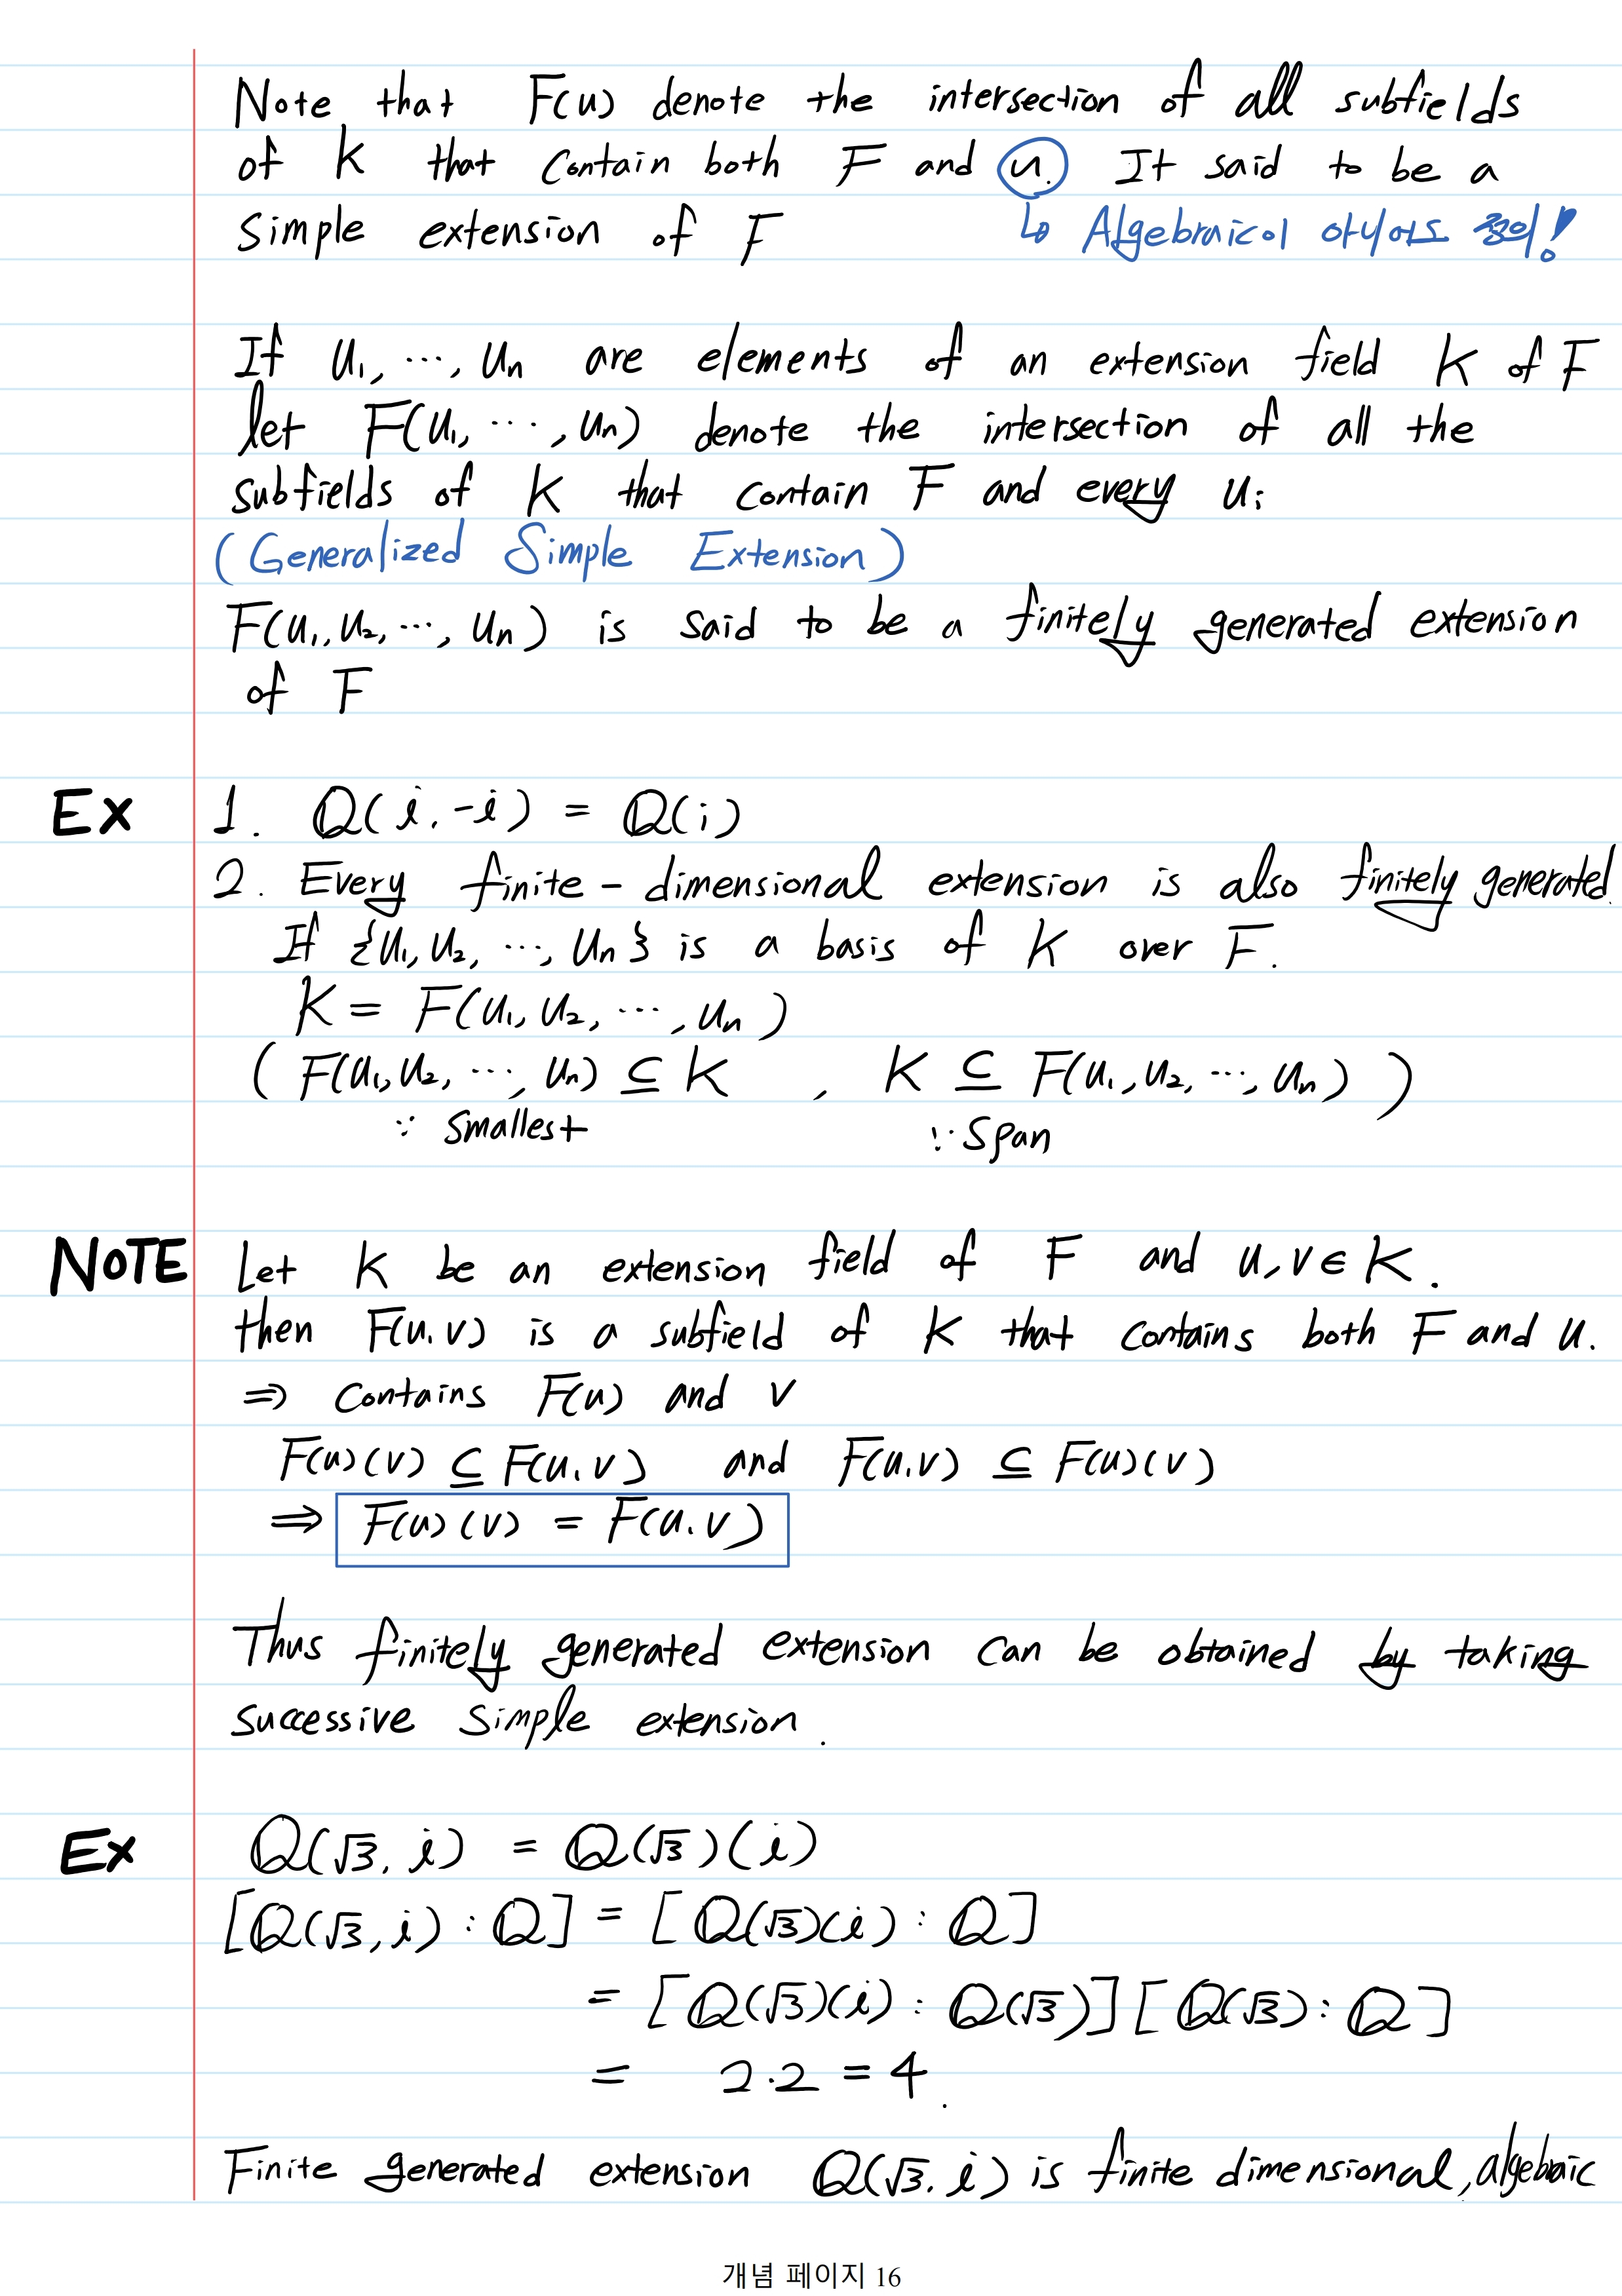 Note that F(u) denote the intersection of all subfields
of K that contain both F and u. It said to be a
simple extension of F
↳ Algebraic이 아니어도 !
If u₁, ⋯, uₙ are elements of an extension field K of F
let F(u₁, ⋯, uₙ) denote the intersection of all the
subfields of K that contain F and every uᵢ
(Generalized Simple Extension)
F(u₁, u₂, ⋯, uₙ) is said to be a finitely generated extension
of F
Ex 1. ℚ(i, -i) = ℚ(i)
2. Every finite-dimensional extension is also finitely generated.
If {u₁, u₂, ⋯, uₙ} is a basis of K over F.
K = F(u₁, u₂, ⋯, uₙ)
( F(u₁, u₂, ⋯, uₙ) ⊆ K , K ⊆ F(u₁, u₂, ⋯, uₙ) )
∵ smallest ∵ span
NOTE Let K be an extension field of F and u, v ∈ K.
then F(u, v) is a subfield of K that contains both F and u.
⇒ contains F(u) and v
F(u)(v) ⊆ F(u, v) and F(u, v) ⊆ F(u)(v)
⇒ F(u)(v) = F(u, v)
Thus finitely generated extension can be obtained by taking
successive simple extension.
Ex ℚ(√3, i) = ℚ(√3)(i)
[ℚ(√3, i) : ℚ] = [ℚ(√3)(i) : ℚ]
= [ℚ(√3)(i) : ℚ(√3)][ℚ(√3) : ℚ]
= 2·2 = 4.
Finite generated extension ℚ(√3, i) is finite dimensional, algebraic
개념 페이지 16